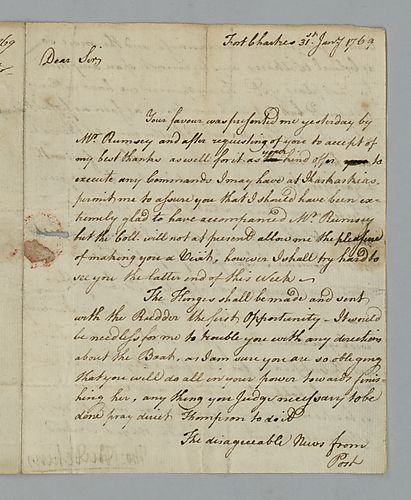 Fort Chartres 31st Jany 1769
Dear Sir,
Your favour was presented me yesterday by
Mr. Rumsey and after requesting of you to accept of
my best thanks as well for it as your kind offer to
execute any Commands I may have at Kaskaskias,
permit me to assure you that I should have been ex-
tremely glad to have accompanied Mr. Rumsey
but the Coll. will not at present allow me the pleasure
of making you a Visit, however I shall try hard to
see you the latter end of this Week
The Hinges shall be made and sent
with the Rudder the first Opportunity – It would
be needless for me to trouble you with any directions
about the Boat, as I am sure you are so obliging
that you will do all in your power towards finis-
hing her, any thing you Judge necessary to be
done pray direct Thompson to do it
The disagreeable News from
Post
769